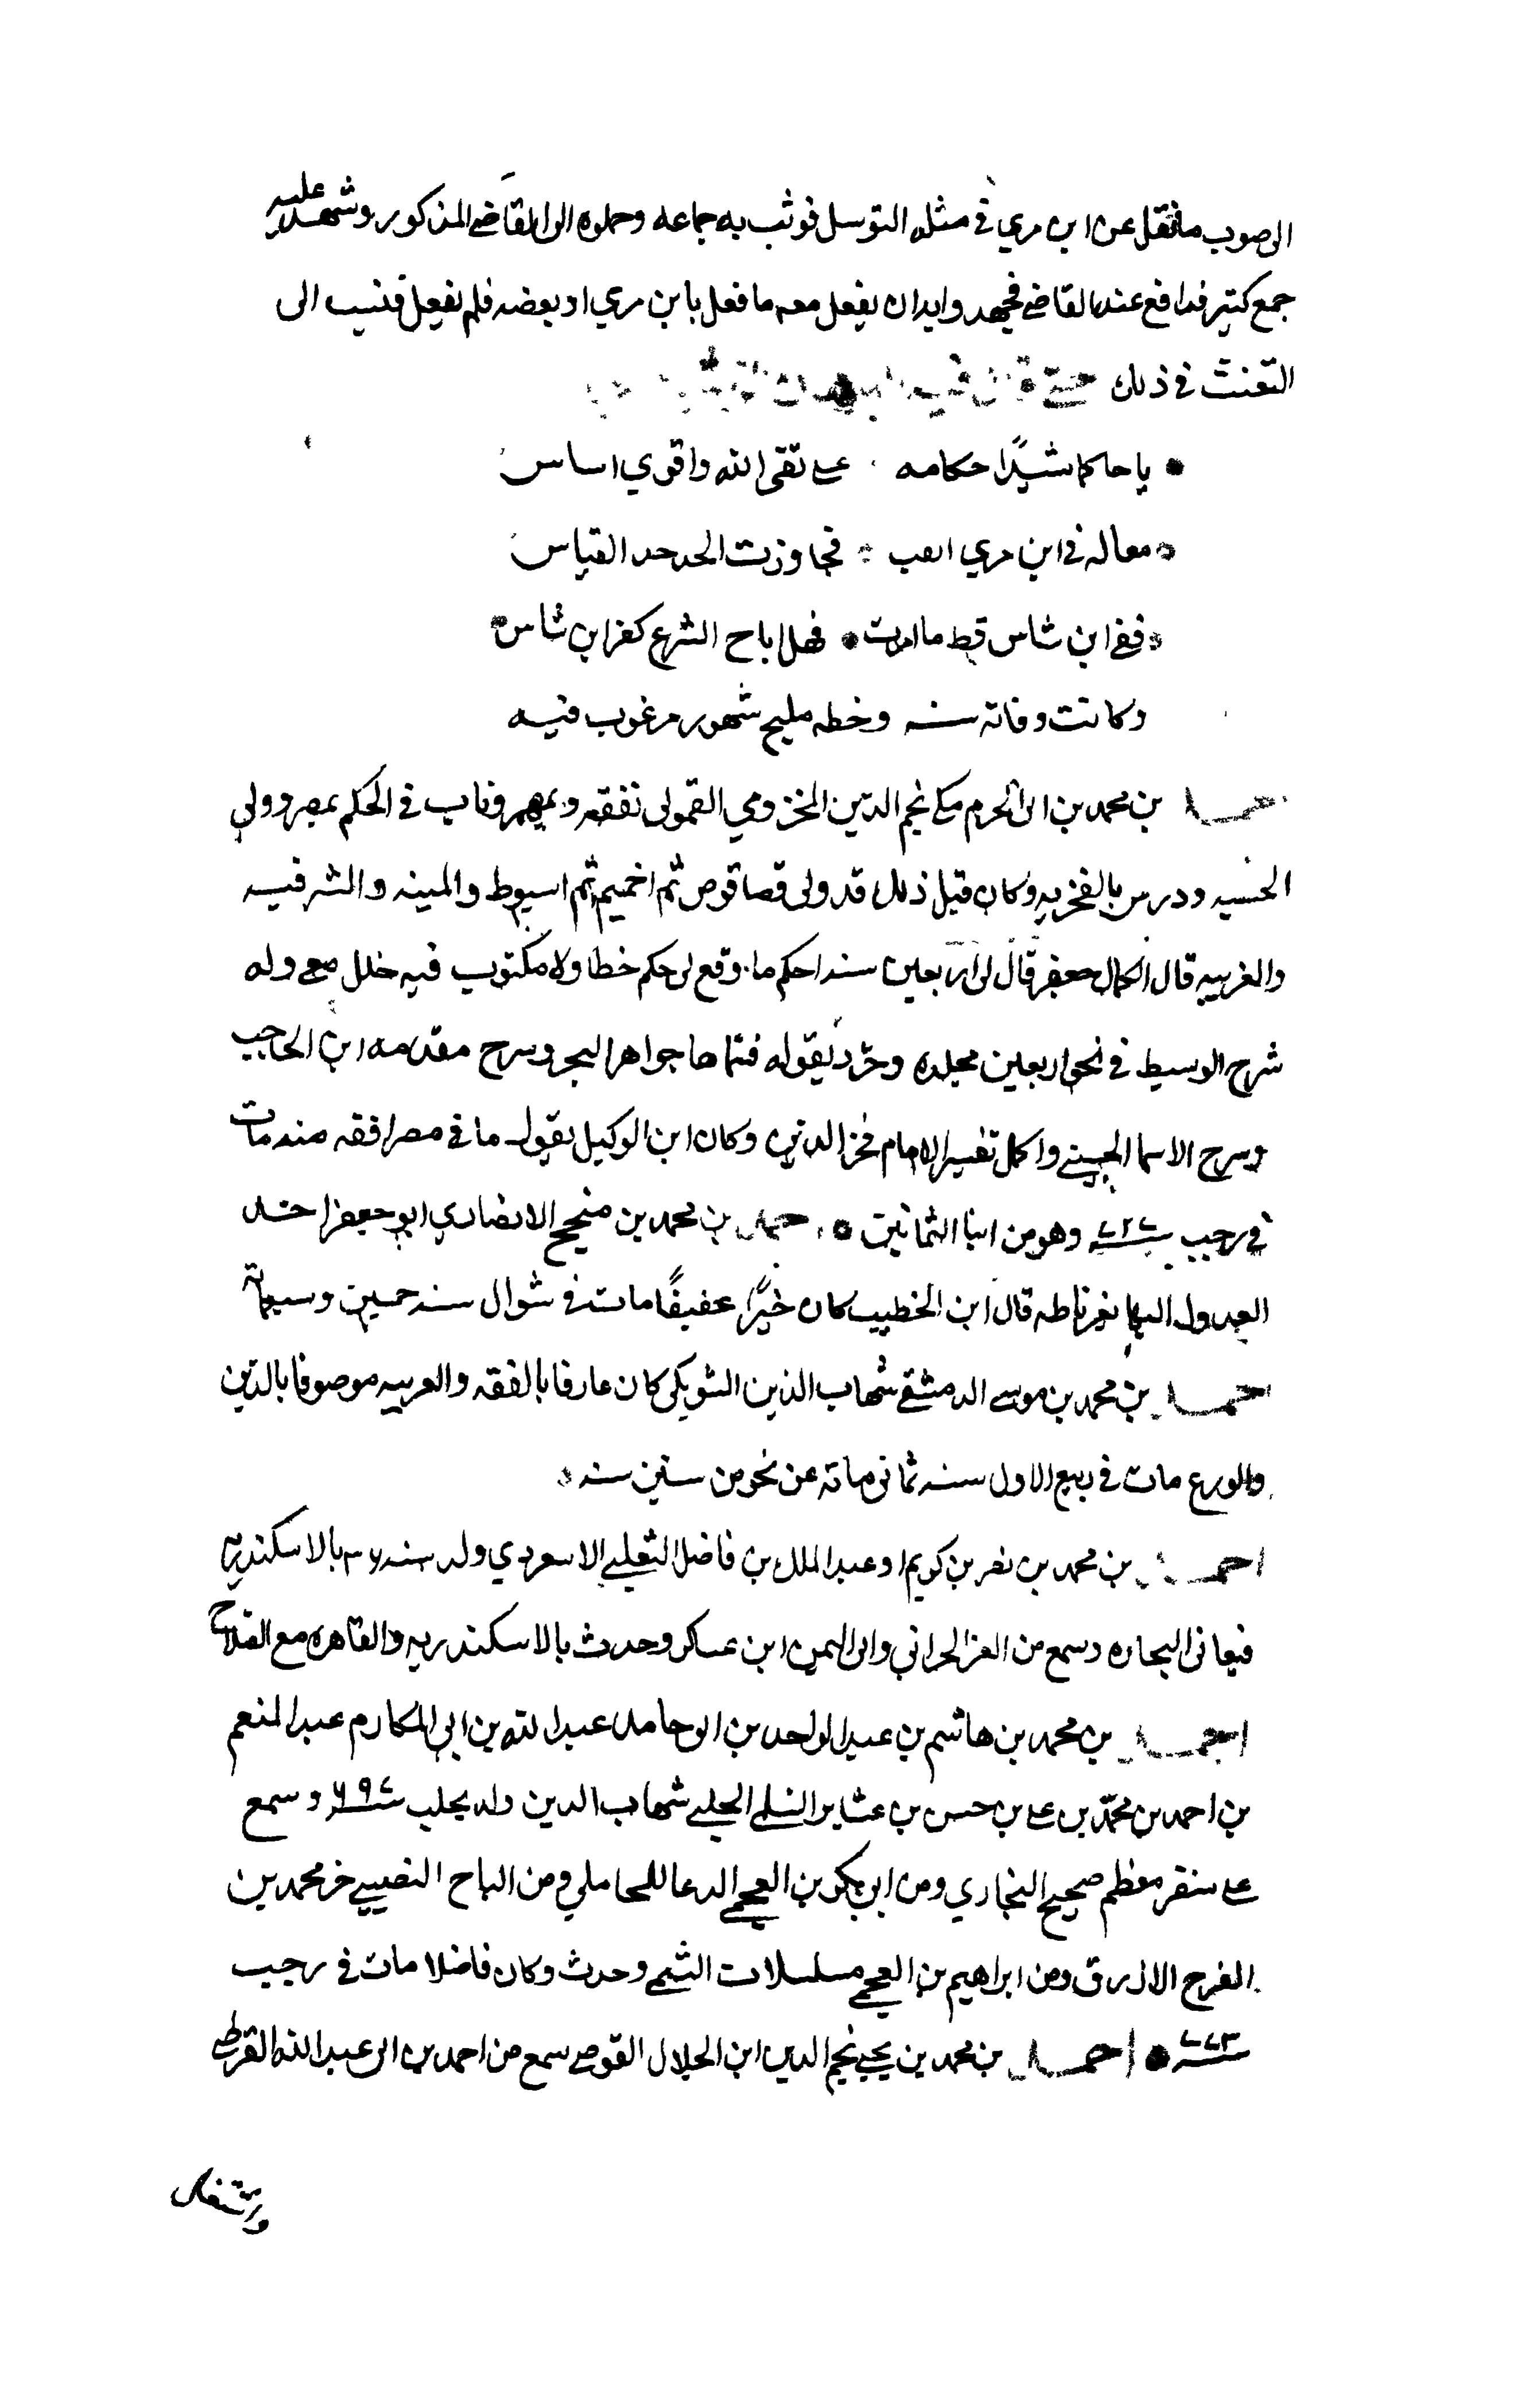 الى صوب ما نقل عن ابن مري في مثله التوسل فوثب به جماعه وحملوه الى القاضي المذكور وشهد عليه
جمع كثير فدافع عنه القاضي فجهدوا بدان يفعل معه ما فعل بابن مري او بعضه فلم يفعل فنسب الى
التعنت في ذلك حتى قال فيه
يا حاكما شيد احكامه على تقى الله واقوي اساس
مقاله في ابن مري فجاوزت الحد حد القياس
ففي ابن شاس قط ما فهل اباح الشرع كفر ابن شاس
وكانت وفاته سنه وخطه مليح شهور مرغوب فيه
احمد بن محمد بن ابي الحرم مكي نجم الدين المخزومي القمولي تفقه وبمهر وناب في الحكم بمصر وولي
الحسبه ودرس بالفخريه وكان قبل ذلك قد ولي قضا قوص ثم اخميم ثم اسيوط والمنيه والشرقيه
والغربيه قال الكمال جعفر قال لي اربعين سنه احكم ما وقع لي حكم خطا ولا مكتوب فيه خلل معي وله
شرح الوسيط في نحو اربعين مجلده وجرد نقوله فسماها جواهر البحر وسرح مقدمه ابن الحاجب
وسرح الاسما الحسنى واكمل تفسير الامام فخر الدين وكان ابن الوكيل يقول ما في مصر افقه منه مات
في رجب ٧٢٧ وهو من ابنا الثمانين احمد بن محمد بن منجح الانصاري ابو جعفر احد
العدول البها بغرناطه قال ابن الخطيب كان خيرا عفيفا مات في شوال سنه خمسين وسبعمائة
احمد بن محمد بن موسى الدمشقي شهاب الدين الشويكي كان عارفا بالفقه والعربيه موصوفا بالدين
والورع مات في ربيع الاول سنه ثماني مائه عن نحو من ستين سنه
احمد بن محمد بن نصر بن كريم او عبد الملك بن فاضل الثعلبي الاسعردي ولد سنه بالاسكندريه
فيعاني التجاره وسمع من العز الحراني وابي اليمن ابن عساكر وحدث بالاسكندريه والقاهره مع الفلاح
احمد بن محمد بن هاشم بن عبد الواحد بن ابو حامد عبد الله بن ابي المكارم عبد المنعم
بن احمد بن محمد بن علي بن حسن بن عشاير السلمي الحلبي شهاب الدين ولد بحلب ٦٩٧ وسمع
على سنقر معظم صحيح البخاري ومن ابي بكر بن العجمي الدعا للمحاملي ومن التاج النصيبي جز محمد بن
الفرج الازرق ومن ابراهيم بن العجمي مسلسلات التيمي وحدث وكان فاضلا مات في رجب
٧٧٣ احمد بن محمد بن يحيى نجم الدين ابن الجلال القوصي سمع من احمد بن ابي عبد الله القرطبي
واشتغل